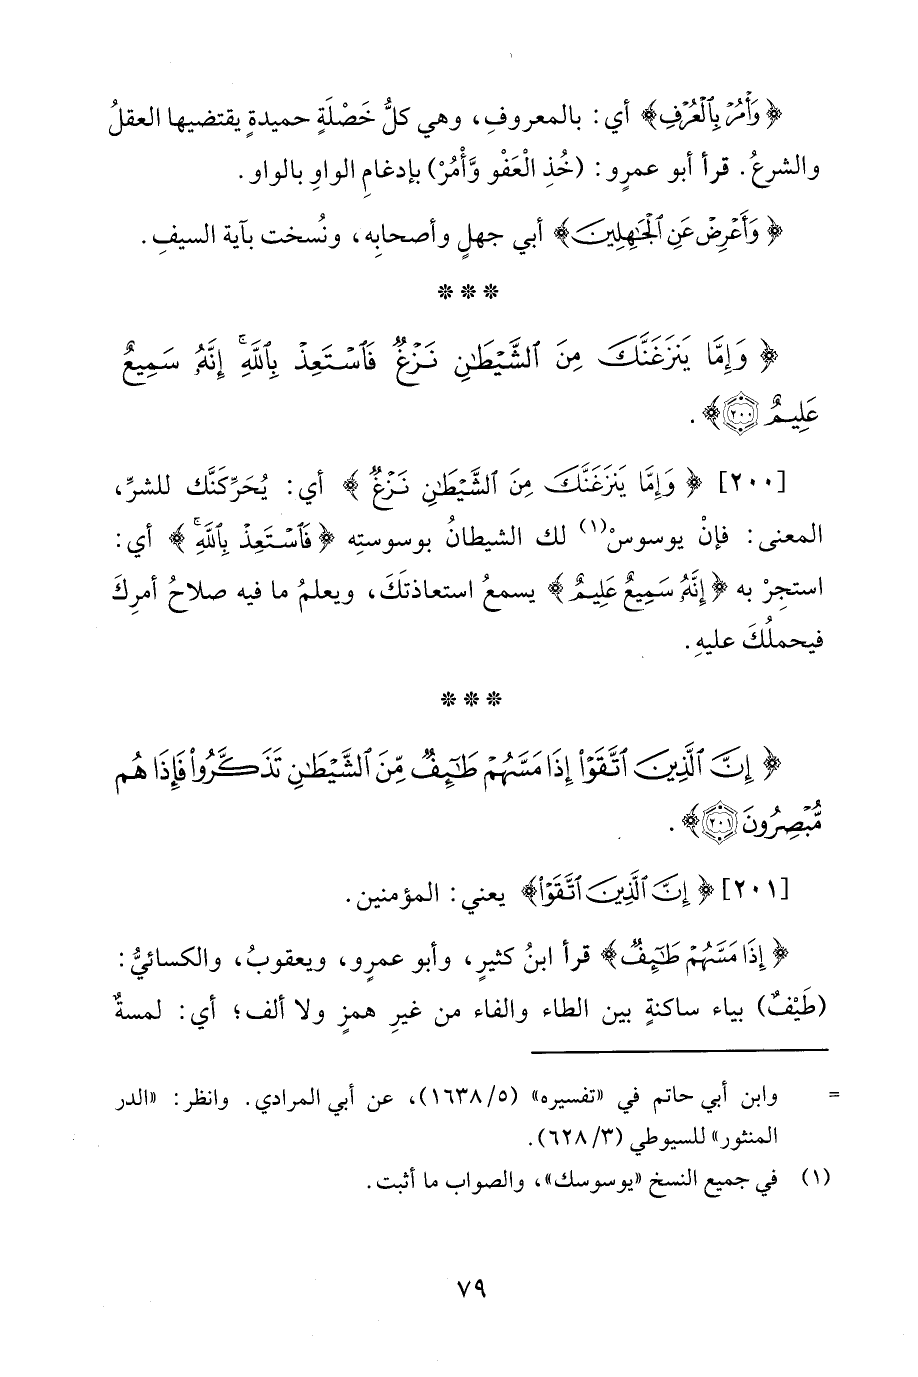 ﴿وَأْمُرْ بِالْعُرْفِ﴾ أي: بالمعروفِ، وهي كلُّ خَصْلَةٍ حميدةٍ يقتضيها العقلُ
والشرعُ. قرأ أبو عمرٍو: (خُذِ الْعَفْو وَّأْمُرْ) بإدغامِ الواوِ بالواو.
﴿وَأَعْرِضْ عَنِ الْجَاهِلِينَ﴾ أبي جهلٍ وأصحابِه، ونُسخت بآية السيفِ.
* * *
﴿وَإِمَّا يَنزَغَنَّكَ مِنَ الشَّيْطَانِ نَزْغٌ فَاسْتَعِذْ بِاللَّهِ إِنَّهُ سَمِيعٌ
عَلِيمٌ ٢٠٠﴾.
[٢٠٠] ﴿وَإِمَّا يَنزَغَنَّكَ مِنَ الشَّيْطَانِ نَزْغٌ﴾ أي: يُحَرِّكَنَّك للشرِّ،
المعنى: فإنْ يوسوسْ(١) لك الشيطانُ بوسوستِه ﴿فَاسْتَعِذْ بِاللَّهِ﴾ أي:
استجِرْ به ﴿إِنَّهُ سَمِيعٌ عَلِيمٌ﴾ يسمعُ استعاذتَكَ، ويعلمُ ما فيه صلاحُ أمرِكَ
فيحملُكَ عليهِ.
* * *
﴿إِنَّ الَّذِينَ اتَّقَوْا إِذَا مَسَّهُمْ طَائِفٌ مِّنَ الشَّيْطَانِ تَذَكَّرُوا فَإِذَا هُم
مُّبْصِرُونَ ٢٠١﴾.
[٢٠١] ﴿إِنَّ الَّذِينَ اتَّقَوْا﴾ يعني: المؤمنين.
﴿إِذَا مَسَّهُمْ طَائِفٌ﴾ قرأ ابنُ كثيرٍ، وأبو عمرٍو، ويعقوبُ، والكسائيُّ:
(طَيْفٌ) بياء ساكنةٍ بين الطاء والفاء من غيرِ همزٍ ولا ألف؛ أي: لمسةٌ
= وابن أبي حاتم في «تفسيره» (٥/ ١٦٣٨)، عن أبي المرادي. وانظر: «الدر
المنثور» للسيوطي (٣/ ٦٢٨).
(١) في جميع النسخ «يوسوسك»، والصواب ما أثبت.
٧٩